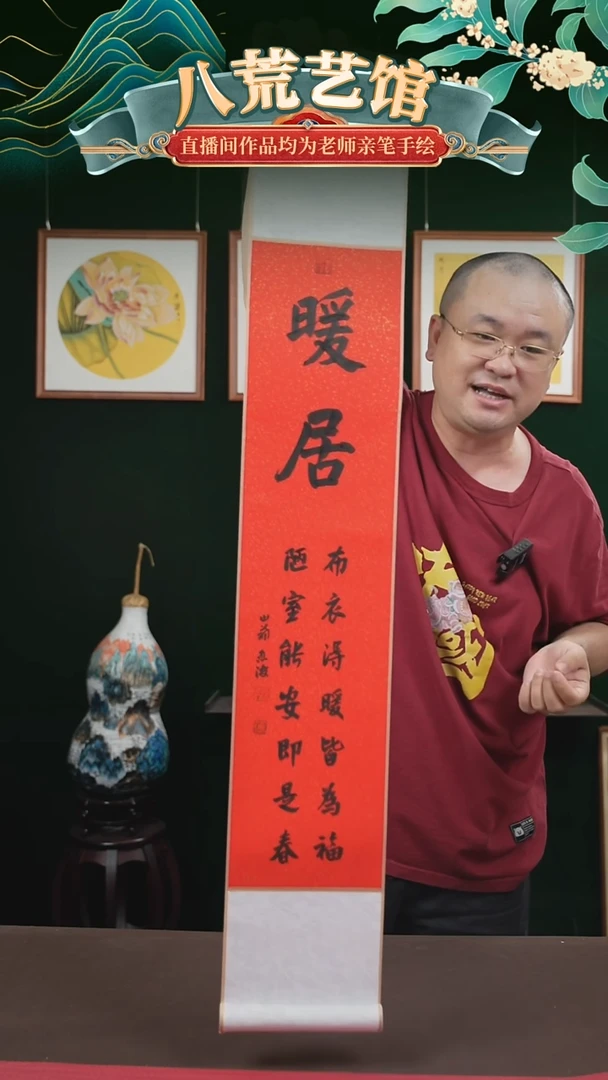 八荒艺馆
直播间作品均为老师亲笔手绘
暖居
布衣得暖皆為福
陋室能安即是春